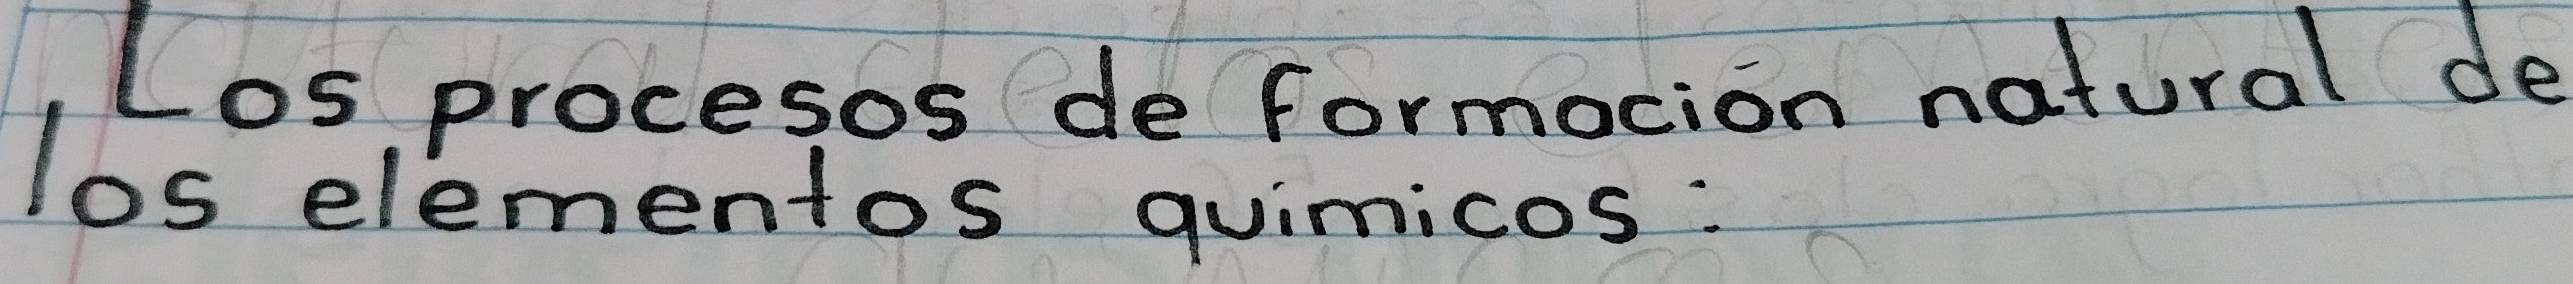 Los procesos de formación natural de
los elementos quimicos: